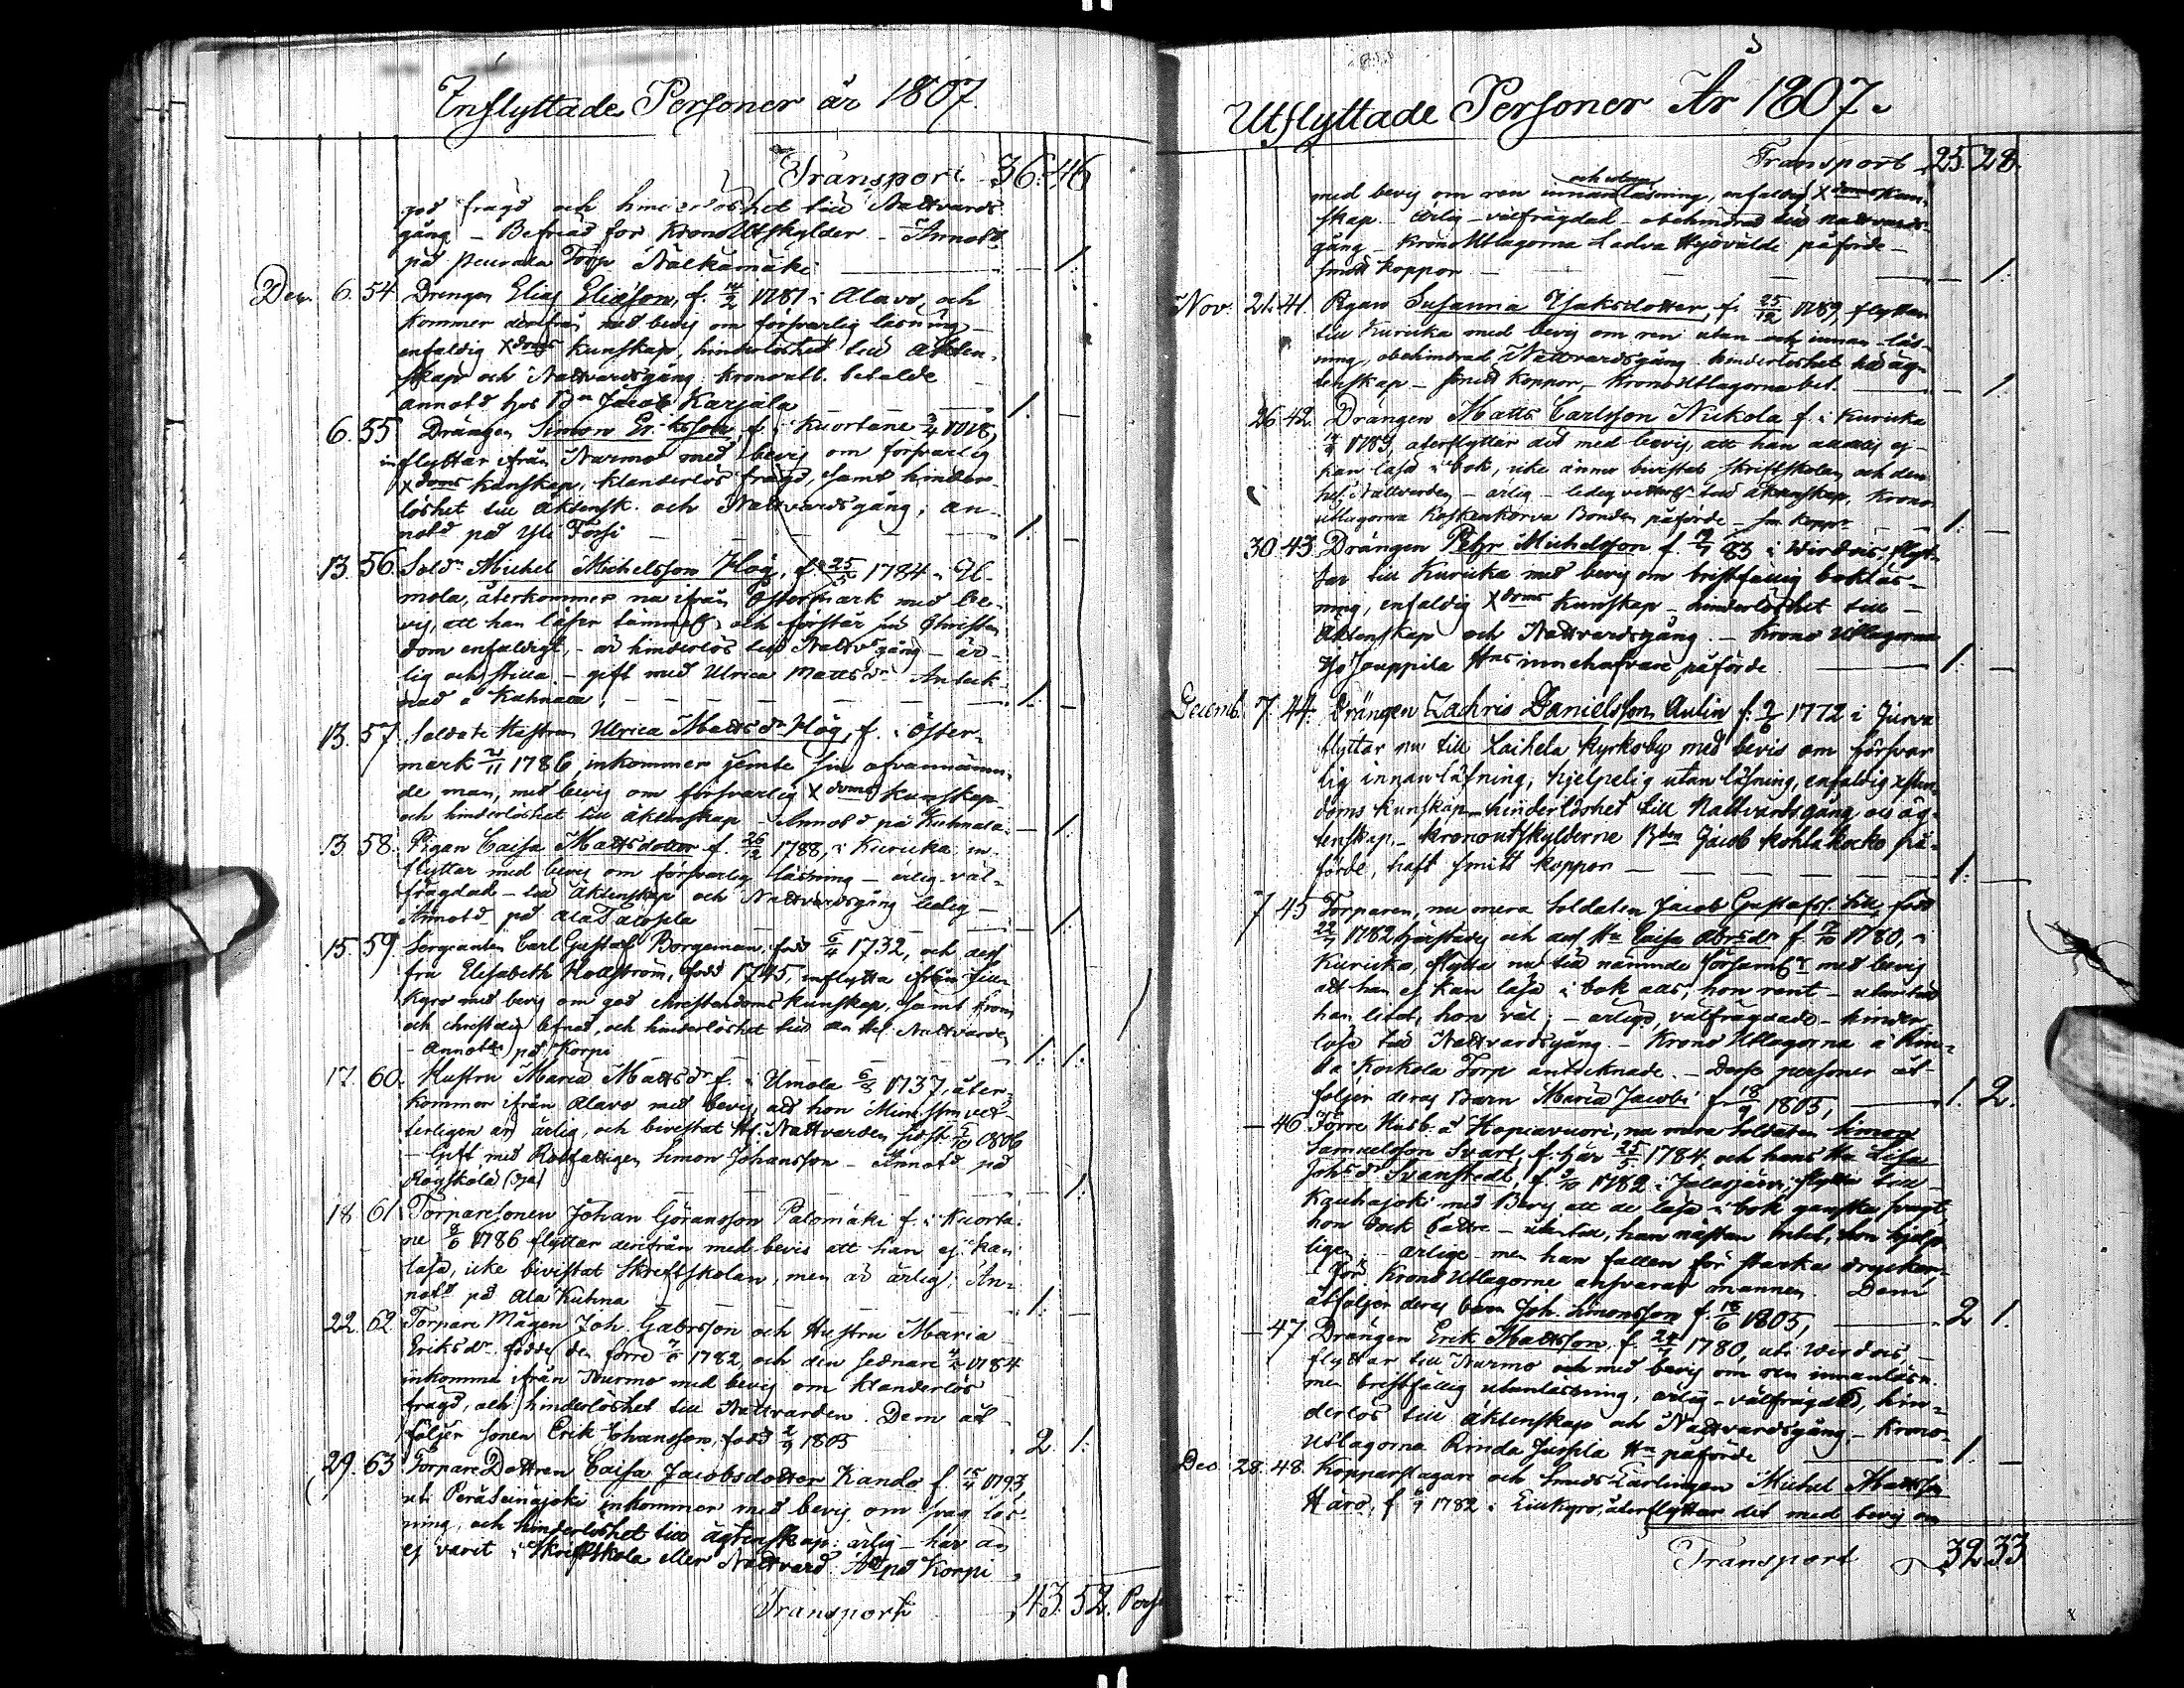 Inflyttade Personer år 1807.
Transport 36. 46
god frägd och hinderlöshet till Nattvards
gång – Befriad för KronoUtskylder – Annotd
på Peurala Torp Nälkämäki — 1.
Dec. 6. 54 Drengen Elias Eliasson, f. 14/2 1787 i Alavo, och
kommer derifrån med bevis om försvarlig läsning –
enfaldig Xdoms kunskap, hinderlöshet till äkten-
skap och Nattvardsgång. kronoutl. betalde
annotd hos Bn Jacob Karjala 1. —
6. 55 Drängen Simon Eriksson, f. i Kuortane
inflyttar ifrån Nurmo med bevis om försvarlig
Xdoms kunskap, klanderlös frägd, samt hinder-
löshet till äktensk. och Nattvardsgång, an-
notd på Yli Torsi 1. —
13. 56. Soldn Michel Michelsson Hög, f. 25/5 1784 i Il-
mola, återkommer nu ifrån Östermark med be-
vis, att han läser lämmel. och förstår sin Christen
dom enfaldigt, – är hinderlös till Nattvgång – är-
lig och stilla – gift med Ulrica Mattsdr Anteck-
nad å Kuhnala 1. —
13. 57 Soldats Hustrun Ulrica Mattsdr Hög, f. i Öster-
mark 21/11 1786, inkommer jemte sin ofvannämn-
de man, med bevis om försvarlig Xdoms kunskap
och hinderlöshet till äktenskap – Annotd på Kuhnala — 1.
13. 58. Pigan Caisa Mattsdotter f. 26/12 1788, i Kuricka, in-
flyttar med bevis om försvarlig läsning – ärlig – väl-
frägdad – till äktenskap och Nattvardsgång ledig –
Annotd på Ala Talosela — 1.
15. 59. Sergeanten Carl Gustaf Borgeman, född 6/4 1732, och dess
fru Elisabeth Hollström, född 1745, inflytta ifrån Lill-
kyro med bevis om god christendoms kunskap, samt from
och christelig lefnad, och hinderlöshet till den Hel. Nattvarden
– Annotde på Korpi 1. 1.
17. 60. Hustru Maria Mattsdr f. i Ilmola 6/8 1737, åter-
kommer ifrån Alavo med bevis att hon
terligen är ärlig, och bevistat H. Nattvarden sidst 5/10 1806
– Gift med Rotfattigen Simon Johansson – Annotd på
Rögskola (Oja) — 1.
18. 61 Torparesonen Johan Göransson Palomäki f. i Kuorta-
ne 8/6 1786 flyttar derifrån med bevis att han ej kan
läsa, icke bivistat Skriftskolan, men är ärlig, An-
notd på Ala Kuhna 1. —
22. 62 Torpare Mågen Joh. Gabrsson och Hustru Maria
Eriksdr födde den förre 7/6 1782, och den sednare 4/2 1784
inkomma ifrån Nurmo med bevis om klanderlös
frägd, och hinderlöshet till Nattvarden. Dem åt-
följer sonen Erik Johansson, född 2/9 1805 2 1.
29. 63 Torpare Dottren Caisa Jacobsdotter Kando f. 15/4 1793,
uti Peräseinäjoki inkommer med bevis om svag läs-
ning, och hinderlöshet till ägtenskap, ärlig – har än
ej varit i Skriftskola eller Nattvard. Ad på Korpi
Transport 43. 52. Pers

Utflyttade Personer År 1807.
Transport 25. 28.
och utan
med bevis om ren innanläsning, enfaldig Xdoms kun-
skap – ärlig – välfrägdad – obehindrad till nattvards-
gång – KronoUtlagorna Ladva Hyövälde påförde –
smitt koppor — 1.
Nov. 21. 41. Pigan Susanna Isaksdotter, f. 25/12 1789, flyttar
till Kuricka med bevis om ren utan och innan läs-
ning, obehindrad Nattvardsgång – hinderlöshet till äg-
tenskap – smitt koppor – KronoUtlagorna bet. — 1.
26. 42. Drängen Matts Carlsson Nickola f. i Kuricka
1789, återflyttar dit med bevis, att han alldels ej
kan läsa i bok, icke ännu bivistat Skriftskolan och den
hel. Nattvarden – ärlig – ledig till äktenskap, Krono
utlagorna Koskenkorva Bonden påförde – sm. koppr 1. —
30. 43 Drängen Petr Michelsson f. 83 i Wirdois, flyt-
tar till Kuricka med bevis om bristfällig bokläs-
ning, enfaldig Xdoms kunskap – hinderlöshet till –
Äktenskap och Nattvardsgång. – Krono Utlagorna
Yjo Jouppila Hns innehafvare påförde 1. —
Decemb. 7. 44. Drängen Zachris Danielsson Aulin f. 2/6 1772 i Jurva
flyttar nu till Laihela kyrkoby med bevis om försvar
lig innanläsning, hjelpelig utanläsning, enfaldig christen
doms kunskap – hinderlöshet till Nattvardsgång och äg-
tenskap. – kronoutskylderne Bden Jacob Kohlakocko på-
förde, haft smitt koppor 1. —
7 45 Torparen, nu mera Soldaten Jacob Gustafs. Lill, född
22/7 1782 härstädes och dess Hu Caisa Abrsdr f. 7/10 1780, i
Kuricka, flytta nu till nämnde Församlr med bevis
att han ej kan läsa i bok alls, hon rent – utantill
han litet, hon väl; – ärliga, välfrägdade – hinder-
lösa till Nattvardsgång. – Krono Utlagorna å Rin-
ta Kockola Torp antecknade. – Desse personer åt-
följer deras Barn Maria Jacobi f. 18/9 1805, 1. 2.
— 46 Förre Husb. å Hopiavuori, nu mera Soldaten Simon
Samuelsson Svart, f. här 25/5 1784, och hans Hu Lisa
Johsdr Svanstedt, f. 9/10 1782 i Jalasjärvi flytta till –
Kauhajoki med Bevis att de läsa i bok ganska svagt,
hon dock bättre – utantill, han nästan intet, hon hjelp-
ligen; – ärlige – men han fallen för starka drycker,
– För Krono Utlagorne ansvarar mannen. Dem
åtföljer deras barn Joh. Simonsson f. 18/6 1805, 2 1.
— 47 Drängen Erik Mattsson, f. 24/7 1780, uti Wirdois, –
flyttar till Nurmo med bevis om ren innanläsn.
men bristfällig utanläsning, ärlig – välfrägdad, hin-
derlös till Äktenskap och Nattvardsgång, – Krono-
Utlagorna Rinda Jussila Hn påförde 1. —
Dec. 28. 48. Kopparslagare och Smeds Lärlingen Michel Mattsson
Hård, f. 1782 i Lillkyro, återflyttar dit med bevis om
Transport 32. 33